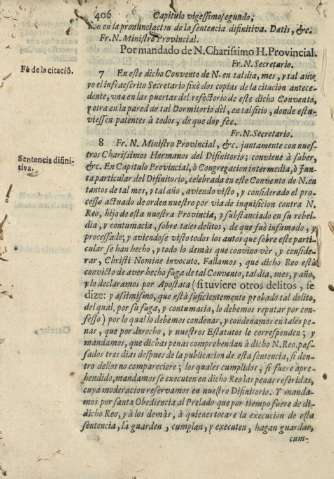 406 Capitulo vigessimosegundo,
cion en la pronunciacion de la sentencia difinitiva. Datis, &c.
Fr. N. Ministro Provincial.
Por mandado de N. Charissimo H. Provincial.
Fr. N. Secretario.
Fè de la citaciō.
7 En este dicho Convento de N. en tal dia, mes, y tal año,
yo el infraescrito Secretario fixè dos copias de la citacion antece-
dente, vna en las puertas del refectorio de este dicho Convento,
y otra en la pared de tal Dormitorio del, en tal sitio, donde estu-
viessen patentes à todos, de que doy fee.
Fr. N. Secretario.
Sentencia difini-
tiva.
8 Fr. N. Ministro Provincial, &c. juntamente con nues-
tros Charissimos Hermanos del Difinitorio; conviene à saber,
&c. En Capitulo Provincial, ò Congregacion intermedia, ò Jun-
ta particular del Difinitorio, celebrada en este Convento de N. en
tantos de tal mes, y tal año, aviendo visto, y considerado el pro-
cesso actuado de orden nuestro por via de inquisicion contra N.
Reo, hijo de esta nuestra Provincia, y substanciado en su rebel-
dia, y contumacia, sobre tales delitos, de que fuè infamado, y
processado; y aviendose visto todos los autos que sobre este parti-
cular se han hecho, y todo lo demàs que convino vèr, y conside-
rar, Christi Nomine invocato. Fallamos, que dicho Reo està
convicto de aver hecho fuga de tal Convento, tal dia, mes, y año,
y lo declaramos por Apostata (si tuviere otros delitos, se
dize: y assimismo, que està suficientemente probado tal delito,
del qual, por su fuga, y contumacia, lo debemos reputar por con-
fesso) por lo qual lo debemos condenar, y condenamos en tales pe-
nas, que por derecho, y nuestros Estatutos le corresponden; y
mandamos, que dichas penas comprehendan à dicho N. Reo, pas-
sados tres dias despues de la publicacion de esta sentencia, si den-
tro dellos no compareciere; los quales cumplidos, si fuere apre-
hendido, mandamos se executen en dicho Reo las penas referidas,
cuya moderacion reservamos en nuestro Difinitorio. Y manda-
mos por santa Obediencia al Prelado que por tiempo fuere de di-
dicho Reo, y à los demàs, à quienes tocare la execucion de esta
sentencia, la guarden, cumplan, y executen, hagan guardar,
cum-